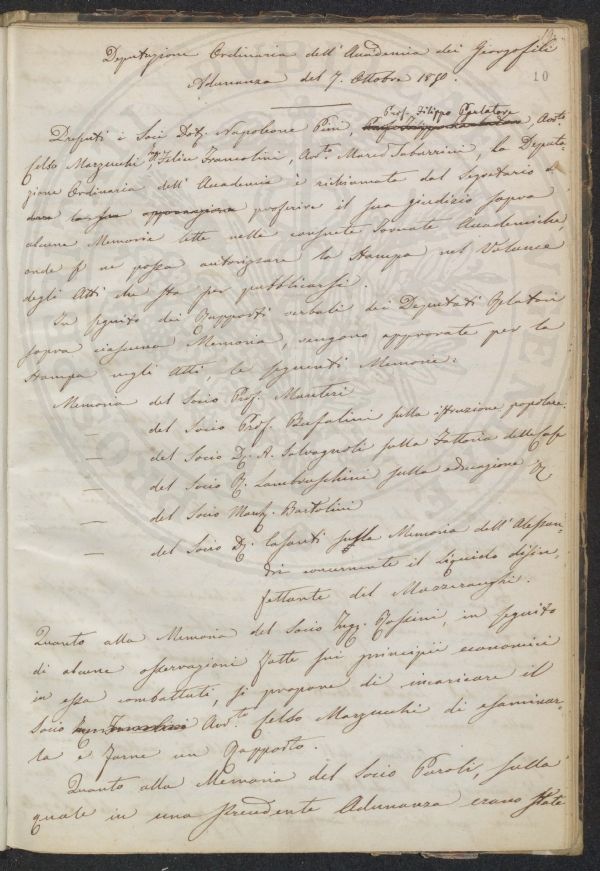 10
Deputazione Ordinaria dell'Accademia dei Georgofili
Adunanza del 7. Ottobre 1850.
Prof. Filippo Parlatore
Deputati i Soci Dott. Napoleone Pini, Avv.to
Celso Marzucchi, Felice Francolini, Avv. Marco Tabarrini, la Deputa-
zione Ordinaria dell'Accademia è richiamata dal Segretario a
dare la sua approvazione proferire il suo giudizio sopra
alcune Memorie lette nelle consuete Tornate Accademiche,
onde se ne possa autorizzare la stampa nel Volume
degli Atti che sta per pubblicarsi.
In seguito dei Rapporti verbali dei Deputati Relatori
sopra ciascuna Memoria, vengono approvate per la
stampa negli Atti le seguenti Memorie:
Memoria del Socio Prof. Manteri
— del Socio Prof. Bufalini sulla istruzione popolare.
— del Socio D. A. Salvagnoli sulla Fattoria delle Case
— del Socio R. Lambruschini sulla educazione
— del Socio March. Bartolini
— del Socio D. Casanti sulla Memoria dell'Alessan-
dri concernente il liquido disin-
fettante del Mazzeranghi.
Quanto alla Memoria del Socio Ingg. Rossini, in seguito
di alcune osservazioni fatte sui principii economici
in essa combattuti, si propone di incaricare il
Socio Avv.to Celso Marzucchi di esaminar-
la e farne un Rapporto.
Quanto alla Memoria del Socio Paroli, sulla
quale in una precedente Adunanza erano state